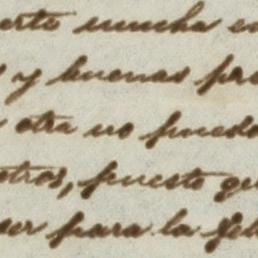 erto mucha en
y buenas pre
otra no puedo
otros, puesto que
ser para la feli